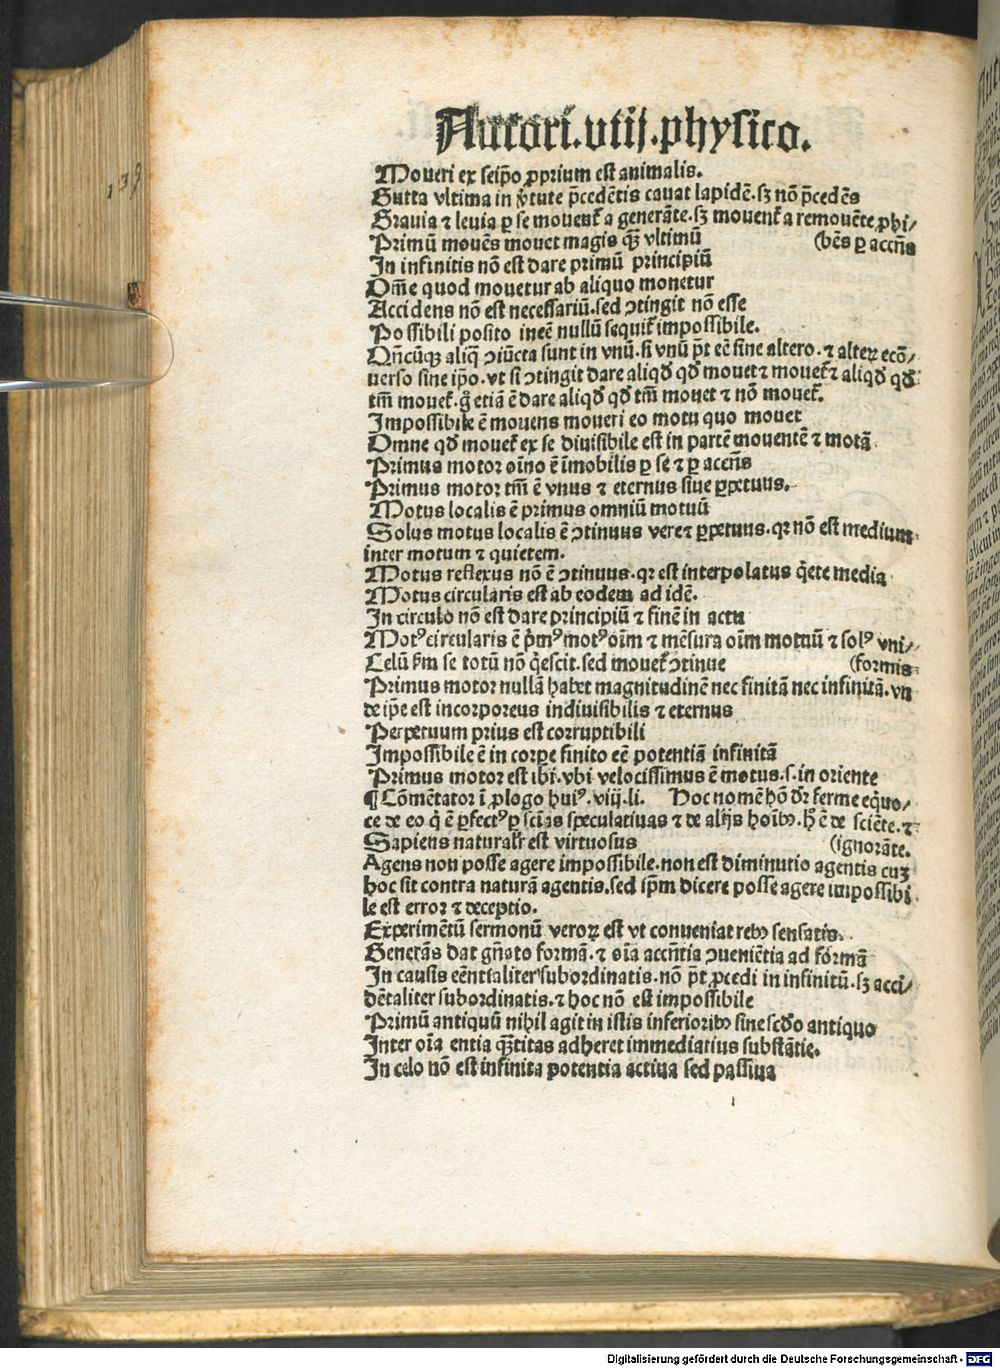 Autori.vtij.physico.
139
Moueri ex seip̄o ꝓprium est animalis.
Gutta vltima in v̓tute p̄cedētis cauat lapidē.sꝫ nō p̄cedēs
Grauia ⁊ leuia ꝑ se mouent̄ a generāte.sꝫ mouent̄ a remouēte ꝓhi/
Primū mouēs mouet magis qꝫ̄ vltimū (bēs ꝑ accn̄s
In infinitis nō est dare primū principiū
Om̄e quod mouetur ab aliquo monetur
Accidens nō est necessariū.sed ↄtingit nō esse
Possibili posito ineē nullū sequit̄ impossibile.
Qn̄cūqꝫ aliq̄ ↄiūcta sunt in vnū.si vnū p̄t eē sine altero.⁊ alteꝝ ecō/
uerso sine ip̄o.vt si ↄtingit dare aliqd̄ qd̄ mouet ⁊ mouet̄ ⁊ aliqd̄ qd̄
tm̄ mouet̄.g̓ etiā ē dare aliqd̄ qd̄ tm̄ mouet ⁊ nō mouet̄.
Impossibile ē mouens moueri eo motu quo mouet
Omne qd̄ mouet̄ ex se diuisibile est in partē mouentē ⁊ motā
Primus motor oīno ē īmobilis ꝑ se ⁊ ꝑ accn̄s
Primus motor tm̄ ē vnus ⁊ eternus siue ꝑpetuus.
Motus localis ē primus omniū motuū
Solus motus localis ē ↄtinuus vere ⁊ ꝑpetuus.qꝛ nō est medium
inter motum ⁊ quietem.
Motus reflexus nō ē ↄtinuus.qꝛ est interpolatus q̓ete media
Motus circularis est ab eodem ad idē.
In circulo nō est dare principiū ⁊ finē in actu
Motꝰ circularis ē p̓mꝰ motꝰ oīm ⁊ mēsura oīm motuū ⁊ solꝰ vni/
Celū ẜm se totū nō q̓escit.sed mouet̄ ↄtinue (formis
Primus motor nullā habet magnitudinē nec finitā nec infinitā.vn
de ip̄e est incorporeus indiuisibilis ⁊ eternus
Perpetuum prius est corruptibili
Impossibile ē in corpe finito eē potentiā infinitā
Primus motor est ibi.vbi velocissimus ē motus.s.in oriente
¶ Cōmētator ī ꝓlogo huiꝰ.viij.li. Hoc nomē hō dr̄ ferme eq̓uo/
ce de eo q̓ ē ꝑfectꝰ ꝑ sciās speculatiuas ⁊ de alijs hoībꝫ.h̄ ē de sciēte.⁊
Sapiens naturalr̄ est virtuosus (ignorāte.
Agens non posse agere impossibile.non est diminutio agentis cuꝫ
hoc sit contra naturā agentis.sed ip̄m dicere posse agere impossibi
le est error ⁊ deceptio.
Experimētū sermonū veroꝝ est vt conueniat rebꝫ sensatis.
Generās dat gn̄ato formā.⁊ oīa accn̄tia ↄueniētia ad formā
In causis eēntialiter subordinatis.nō p̄t ꝓcedi in infinitū.sꝫ acci/
dētaliter subordinatis.⁊ hoc nō est impossibile
Primū antiquū nihil agit in istis inferioribꝫ sine scd̄o antiquo
Inter oīa entia qꝫ̄titas adheret immediatius substātie.
In celo nō est infinita potentia actiua sed passiua
Digitalisierung gefördert durch die Deutsche Forschungsgemeinschaft - DFG